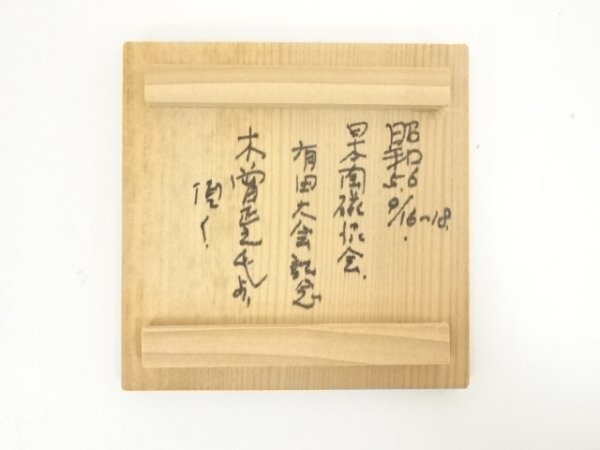 昭和56. 9/16~18.
日本陶磁協会.
有田大会記念
木曽 氏より,
頂く.